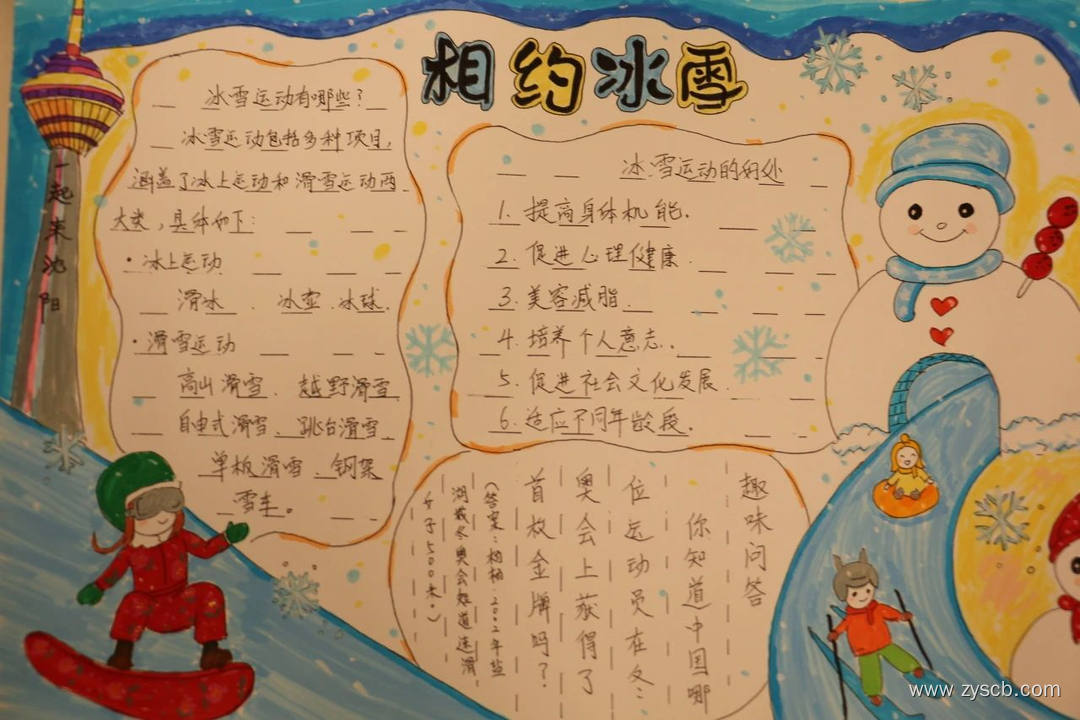 相约冰雪
一起来沈阳
冰雪运动有哪些?
冰雪运动包括多种项目,
涵盖了冰上运动和滑雪运动两
大类,具体如下:
·冰上运动
滑冰、冰壶、冰球.
·滑雪运动
高山滑雪、越野滑雪
自由式滑雪、跳台滑雪
单板滑雪、钢架
雪车。
冰雪运动的好处
1. 提高身体机能.
2. 促进心理健康.
3. 美容减脂.
4. 培养个人意志.
5. 促进社会文化发展.
6. 适应不同年龄段.
趣味问答
你知道中国哪
位运动员在冬
奥会上获得了
首枚金牌吗?
(答案:杨杨.2002年盐
湖城冬奥会短道速滑
女子500米。)
www.zyscb.com